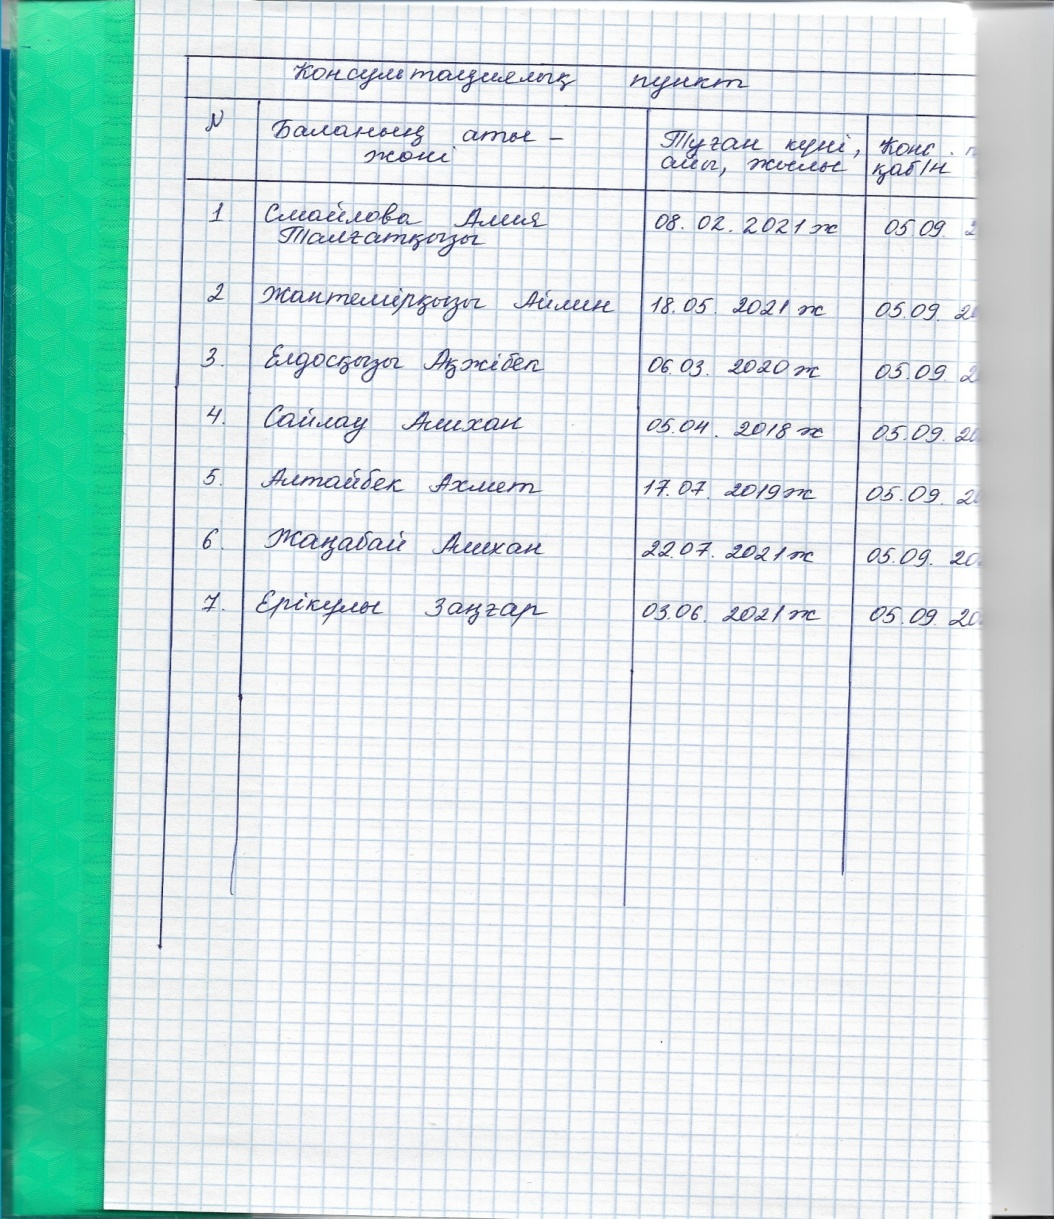 Консультациялық пункт
N Баланың аты – Туған күні, Конс.
жөні айы, жылы қаб/н
1 Смайлова Алия 08.02.2021ж 05.09.
Талғатқызы
2 Жантемірқызы Айлин 18.05.2021ж 05.09. 20
3. Елдосқызы Ақжібек 06.03.2020ж 05.09. 2
4. Сайлау Алихан 05.04.2018ж 05.09. 20
5. Алтайбек Ахмет 17.07.2019ж 05.09. 20
6. Жаңабай Алихан 22.07.2021ж 05.09. 20
7. Ерікұлы Заңғар 03.06.2021ж 05.09 20